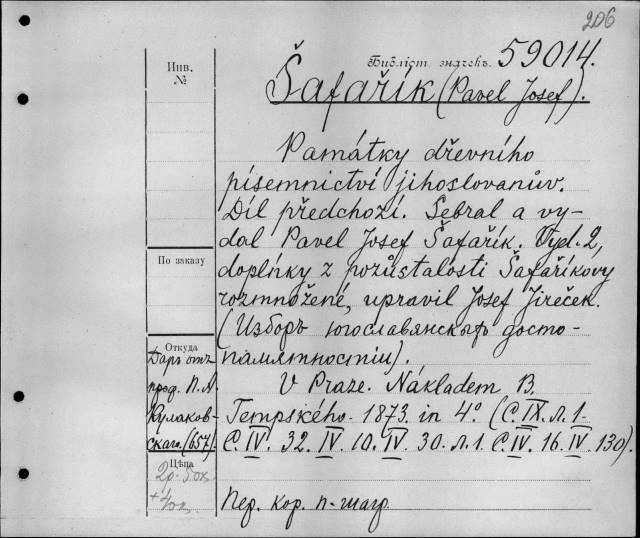 206
Библіот. значекъ 59014.
Инв.
№
Šafařík (Pavel Josef).
Památky dřevního
písemnictví jihoslovanův.
Díl předchozí. Sebral a vy-
dal Pavel Josef Šafařík. Vyd. 2,
По заказу
doplňky z pozůstalosti Šafaříkovy
rozmnožené, upravil Josef Jireček.
(Изборъ югославянскагъ досто-
памлятностіи).
Откуда
Даръ отъ
проф. П. А.
Кулаков-
скаго. (657)
V Praze. Nákladem B.
Tempského. 1873. in 4° (C. IX. л. 1.
C. IV. 32. IV. 10. IV. 30. л. 1. C. IV. 16. IV 130).
Цѣна
2р. 50к
+ 40к
Пер. кор. п-шагр.